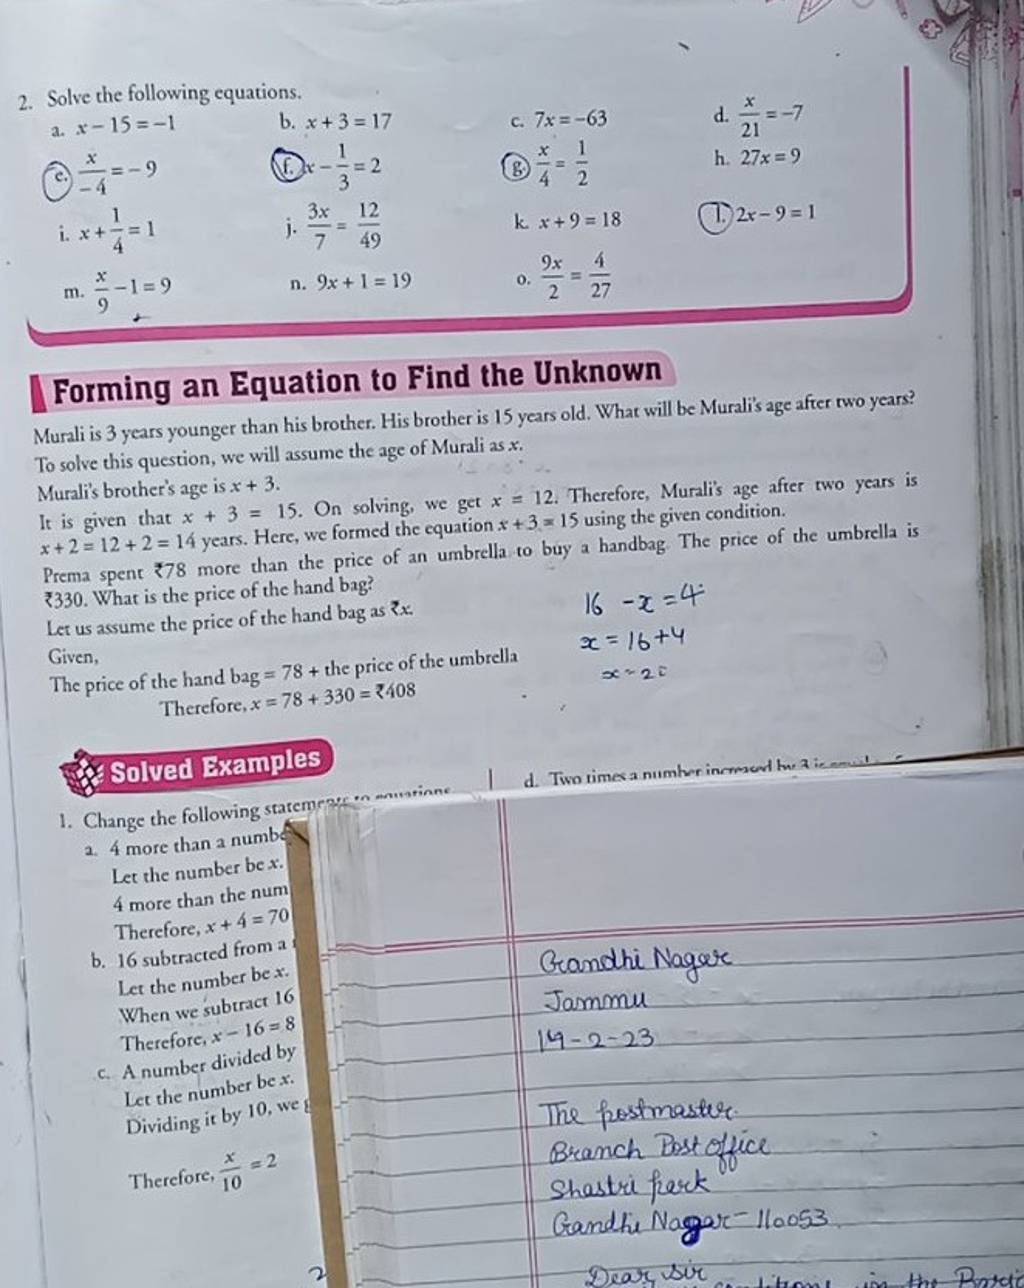 2. Solve the following equations.
a. x − 15 = −1 b. x + 3 = 17 c. 7x = −63 d. x/21 = −7
e. x/−4 = −9 f. x − 1/3 = 2 g. x/4 = 1/2 h. 27x = 9
i. x + 1/4 = 1 j. 3x/7 = 12/49 k. x + 9 = 18 l. 2x − 9 = 1
m. x/9 − 1 = 9 n. 9x + 1 = 19 o. 9x/2 = 4/27
Forming an Equation to Find the Unknown
Murali is 3 years younger than his brother. His brother is 15 years old. What will be Murali's age after two years?
To solve this question, we will assume the age of Murali as x.
Murali's brother's age is x + 3.
It is given that x + 3 = 15. On solving, we get x = 12. Therefore, Murali's age after two years is
x + 2 = 12 + 2 = 14 years. Here, we formed the equation x + 3 = 15 using the given condition.
Prema spent ₹78 more than the price of an umbrella to buy a handbag. The price of the umbrella is
₹330. What is the price of the hand bag?
Let us assume the price of the hand bag as ₹x.
Given,
The price of the hand bag = 78 + the price of the umbrella
Therefore, x = 78 + 330 = ₹408
16 - x = 4
x = 16 + 4
x = 20
Solved Examples
1. Change the following statements to equations
a. 4 more than a numbe
Let the number be x.
4 more than the num
Therefore, x + 4 = 70
b. 16 subtracted from a
Let the number be x.
When we subtract 16
Therefore, x − 16 = 8
c. A number divided by
Let the number be x.
Dividing it by 10, we g
Therefore, x/10 = 2
2
d. Two times a number increased by 3 is
Gandhi Nagar
Jammu
14-2-23
The postmaster
Branch Post office
Shastri park
Gandhi Nagar - 110053
Dear Sir
in the